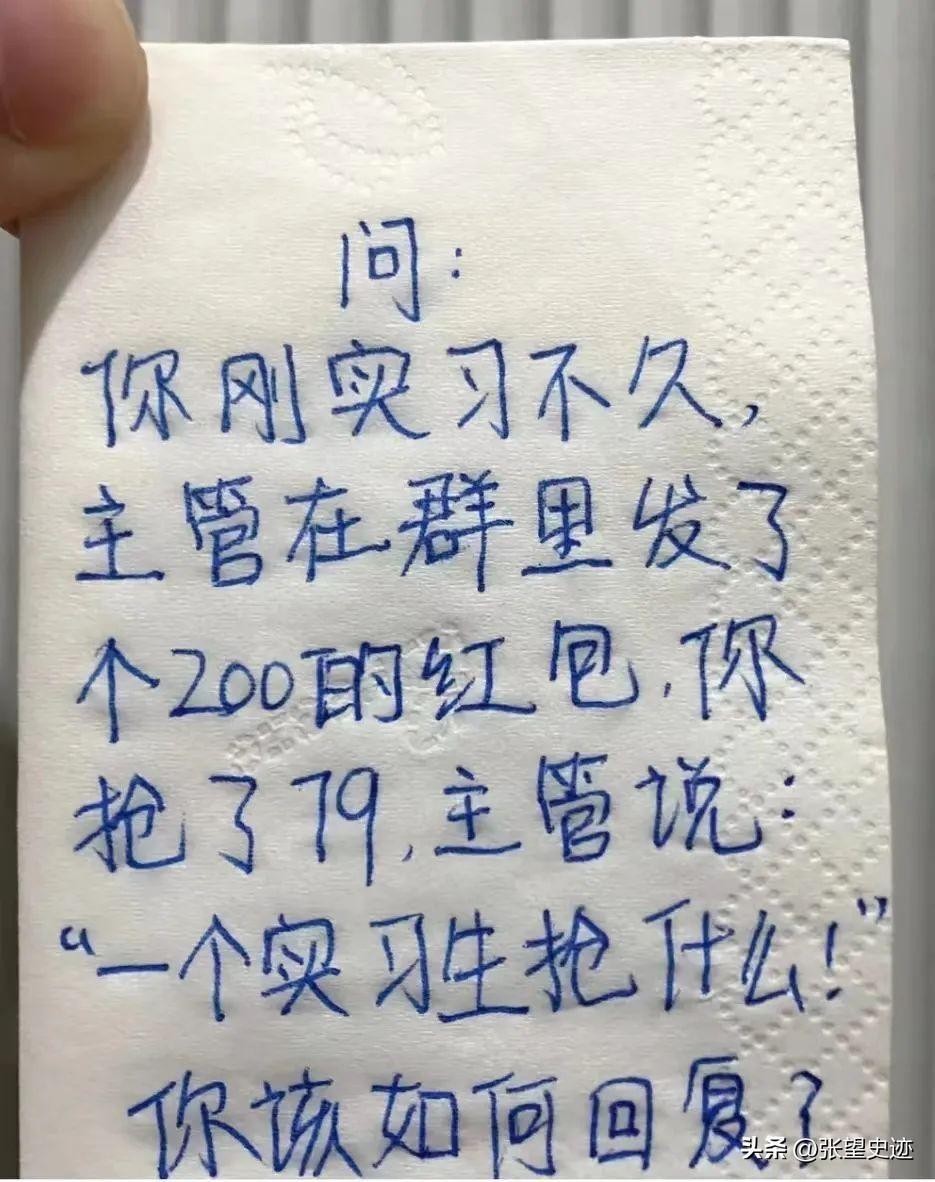 问:
你刚实习不久,
主管在群里发了
个200的红包,你
抢了79,主管说:
“一个实习生抢什么!”
你该如何回复?
头条 @张望史迹